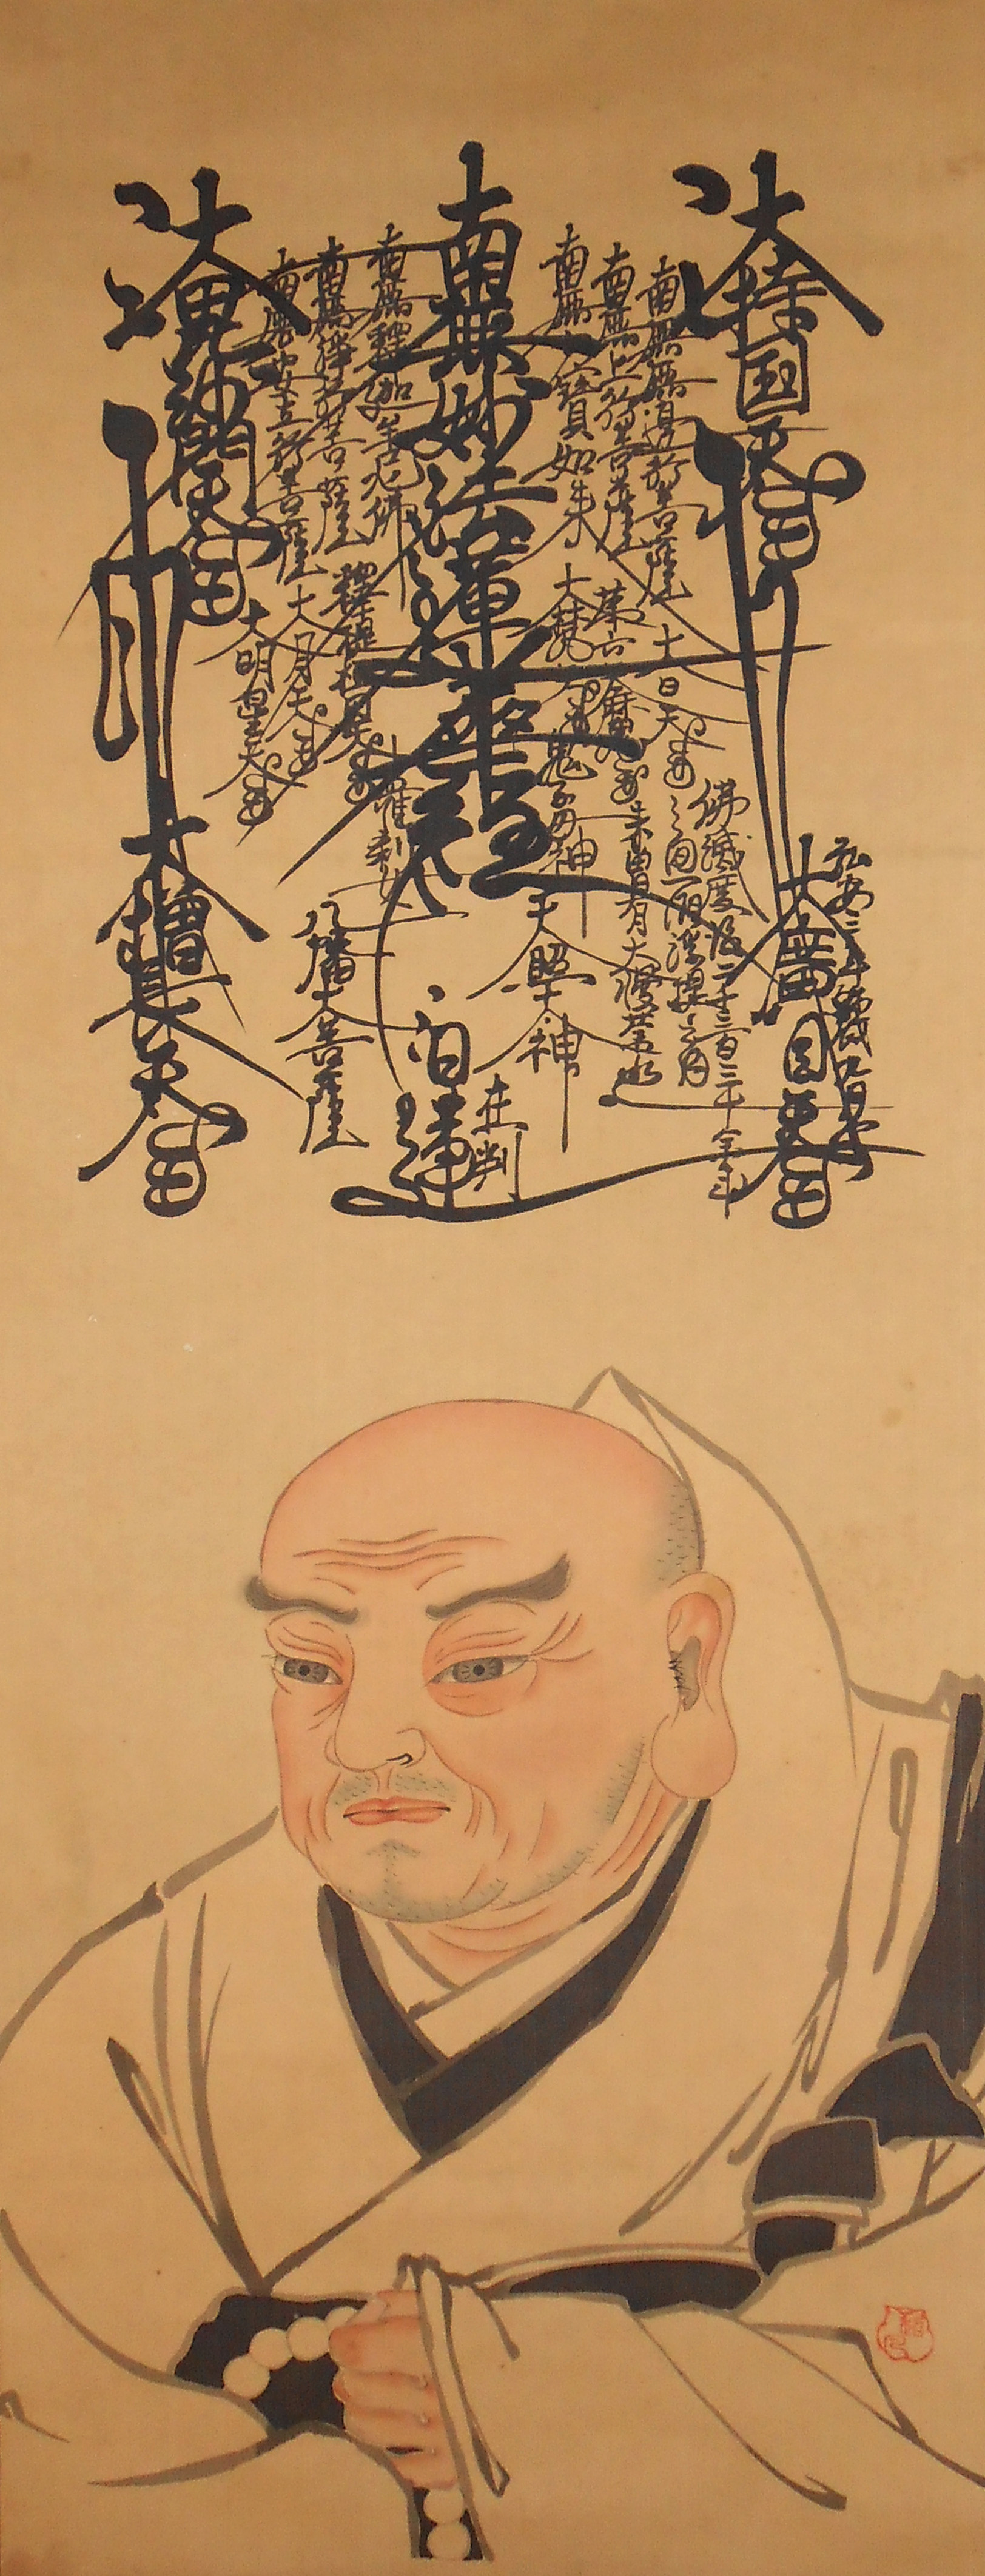 大持国天王
大廣目天王
南無無邊行菩薩
南無上行菩薩
南無多寶如来
大日天王
第六天魔王
大梵天王
鬼子母神
天照大神
佛滅度後二千二百三十余年
之間一閻浮提之内
未曽有大漫荼羅也
南無妙法蓮華経
日蓮
在判
南無釋迦牟尼佛
南無浄行菩薩
南無安立行菩薩
釋提桓因大王
大月天王
大明星天王
十羅刹女
八幡大菩薩
大毘沙門天王
大増長天王